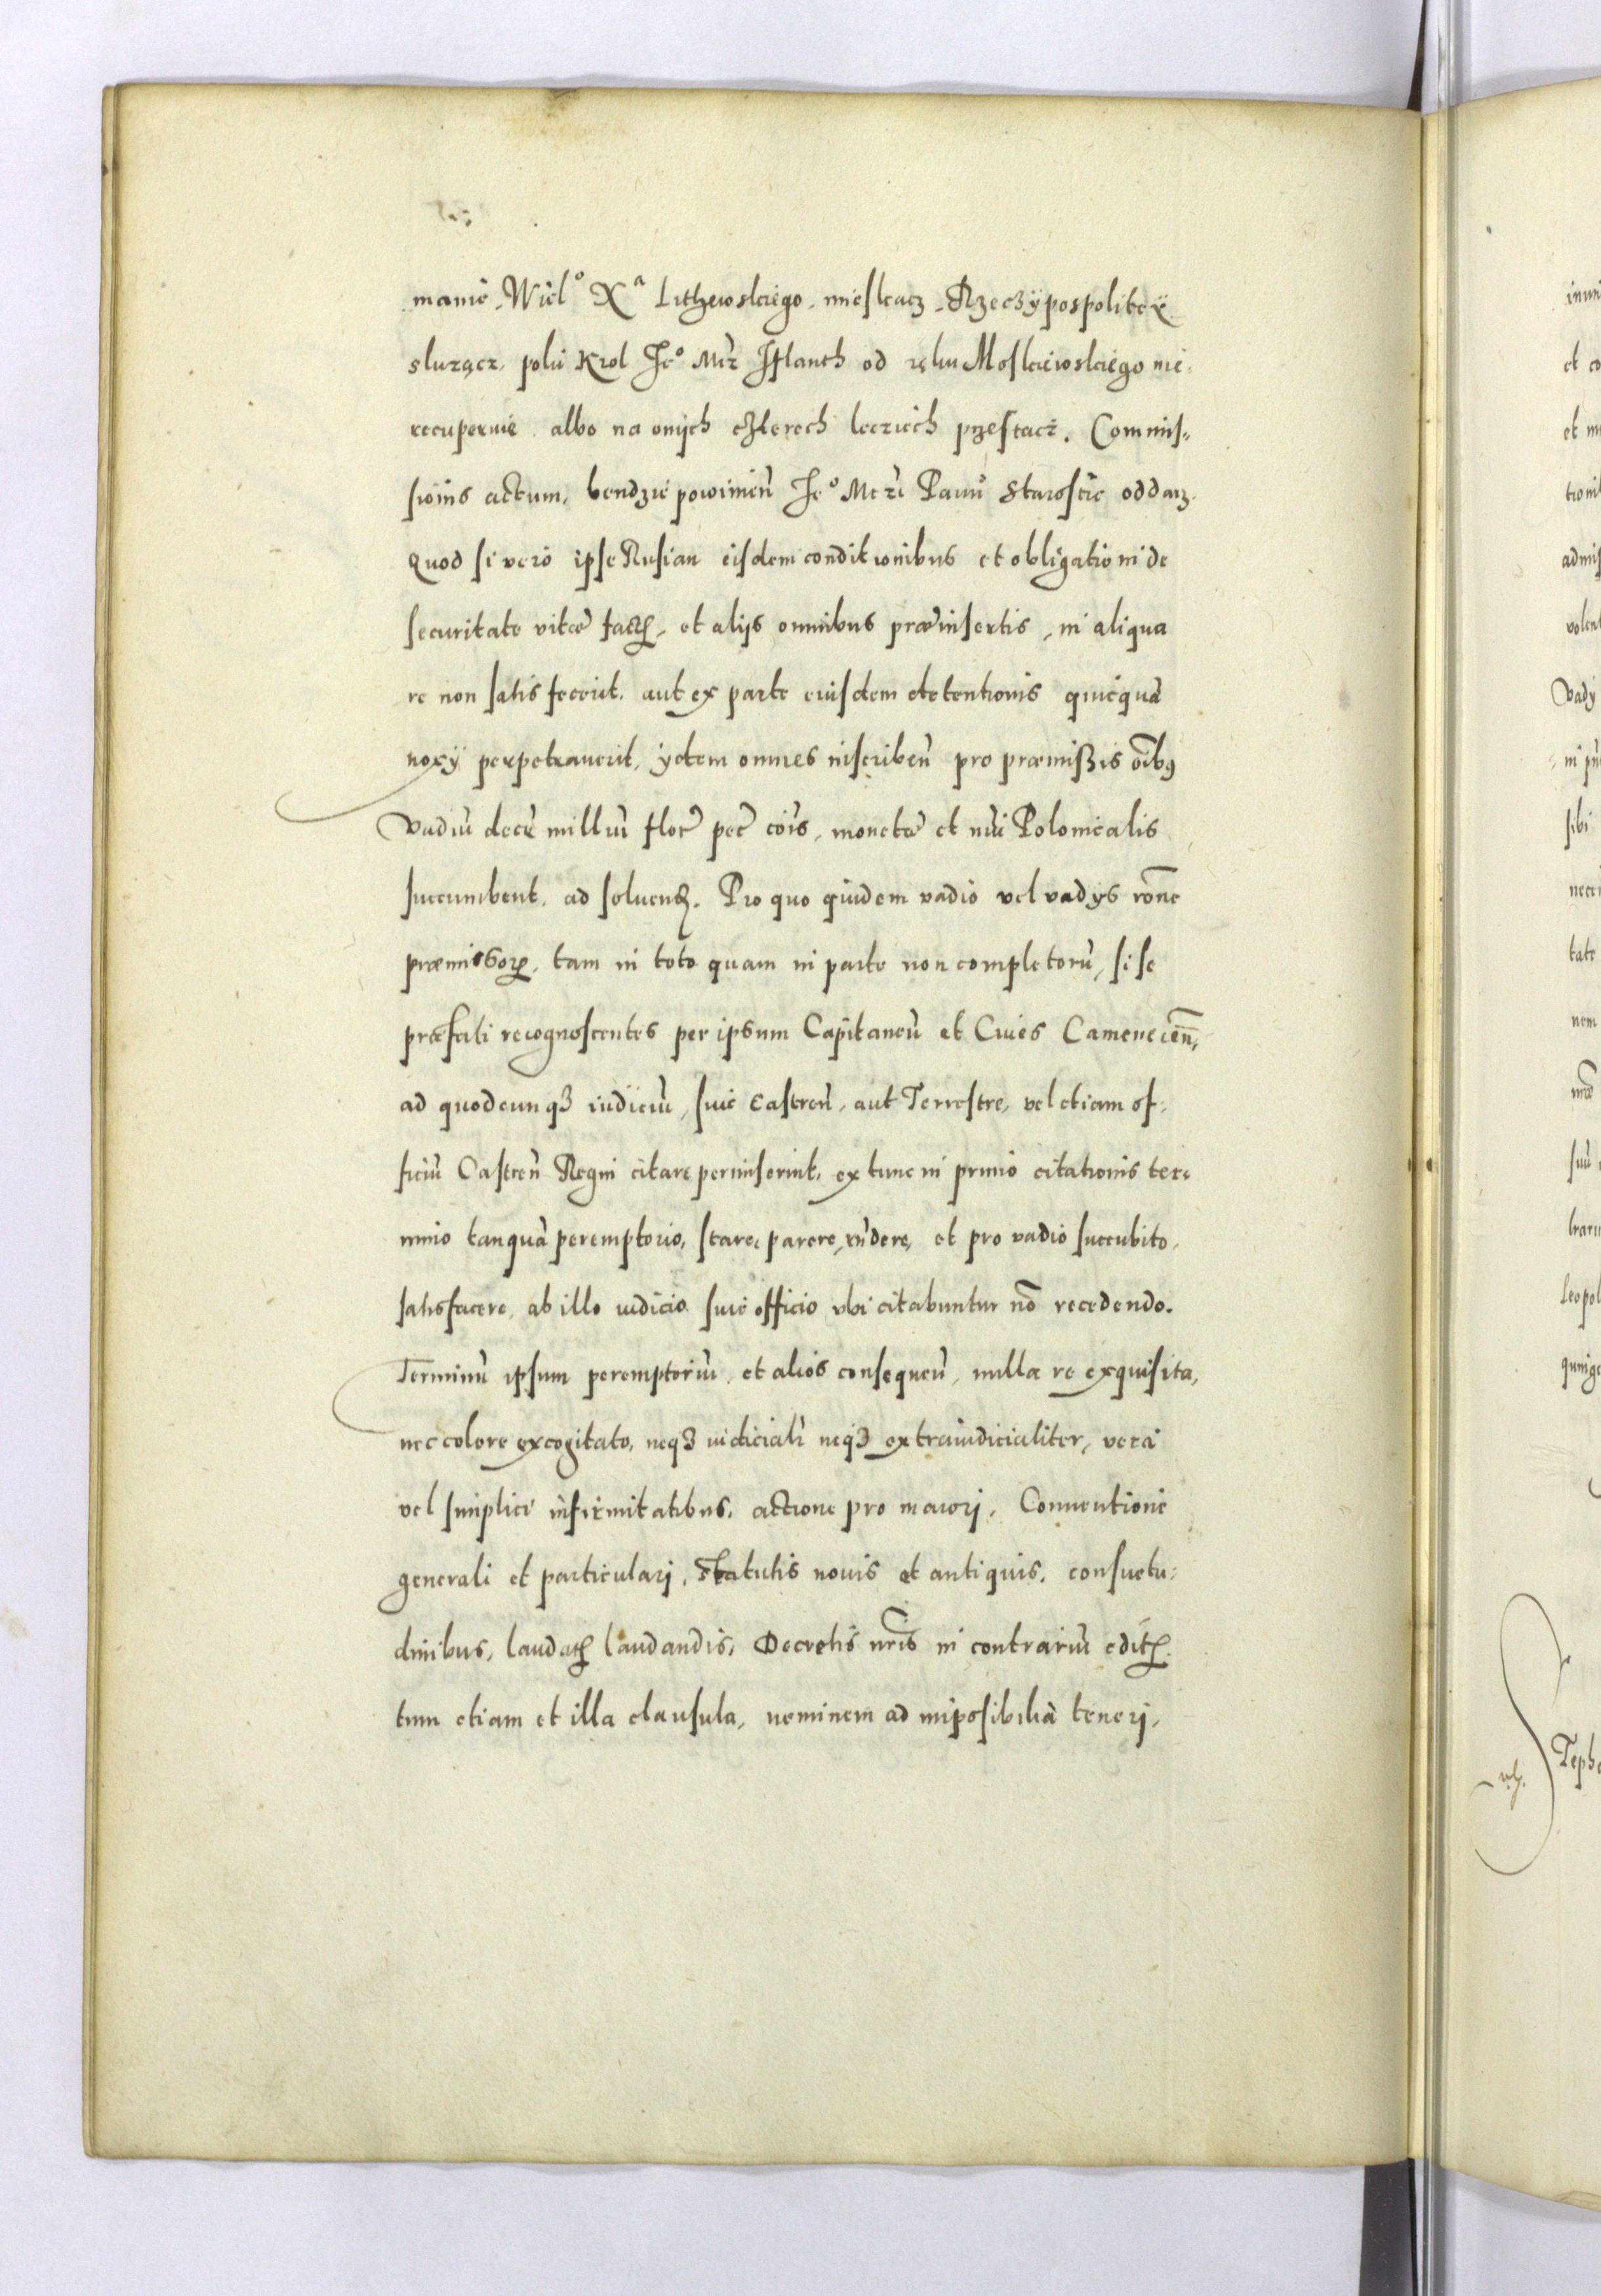 manie, Wiel° Xᵃ Lithewskiego, mieskacz, Rzeczÿpospoliteÿ
sluzącz, poki Krol Je° Mcz Jflanth od ręku Moskiewskiego nie
recuperuie, albo na onijch czterech leciech przestacz. Commis-
sionis actum, bendzie powinien̄ Je° Mczi Panu Staroscie oddacz.
Quod si vero ipse Rusian eisdem conditionibus et obligationi de
securitate vitæ factꝭ, et alijs omnibus præinsertis, in aliqua
re non satisfecerit, aut ex parte eiusdem detentionis quicquā
noxÿ perpetrauerit, ÿdem omnes inscriben̄ pro præmissis oībꝰ
Vadiū decē milliū flor̄ pec̄ cōis, monetæ et nūi Polonicalis
succumbent, ad soluendꝭ. Pro quo quidem vadio vel vadys rōne
præmissorꝝ, tam in toto quam in parte non completorū, si se
præfati recognoscentes per ipsum Capitaneū et Ciues Camenecen̄,
ad quodcunqꝫ iudiciū, siue Castren̄, aut Terrestre, vel etiam of-
ficiū Castren̄ Regni citare permiserint, ex tunc in primo citationis ter-
mino tanquā peremptorio, stare, parere, rn̄dere, et pro vadio succubito,
satisfacere, ab illo iudicio siue officio vbi citabuntur nō recedendo.
Terminū ipsum peremptoriū, et alios consequen̄, nulla re exquisita,
nec colore excogitato, neqꝫ iudiciali neqꝫ extraiudicialiter, vera
vel simplici infirmitatibus, actione pro maiori, Conuentione
generali et particulari, statutis nouis et antiquis, consuetu-
dinibus, laudatꝭ laudandis, Decretis nr̄is in contrariū editꝭ.
tum etiam et illa clausula, neminem ad impossibilia teneri,